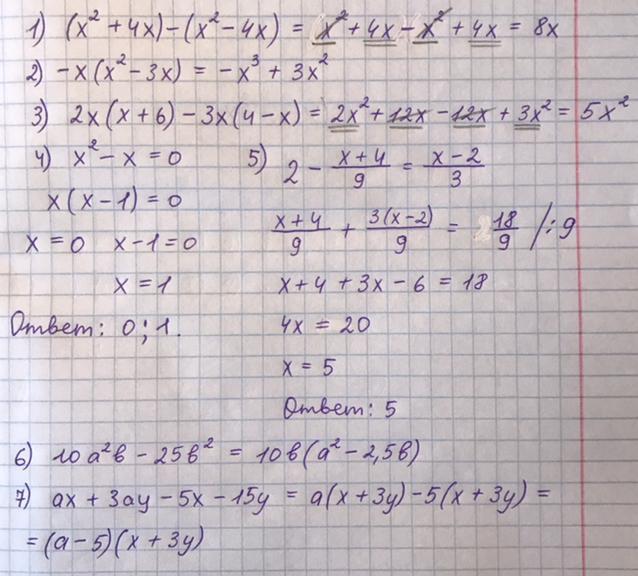 1) (x² + 4x) - (x² - 4x) = x² + 4x - x² + 4x = 8x
2) -x(x² - 3x) = -x³ + 3x²
3) 2x(x + 6) - 3x(4 - x) = 2x² + 12x - 12x + 3x² = 5x²
4) x² - x = 0
x(x - 1) = 0
x = 0 x - 1 = 0
x = 1
Ответ: 0; 1.
5) 2 - (x + 4)/9 = (x - 2)/3
(x + 4)/9 + 3(x - 2)/9 = 18/9 /: 9
x + 4 + 3x - 6 = 18
4x = 20
x = 5
Ответ: 5
6) 10a²b - 25b² = 10b(a² - 2,5b)
7) ax + 3ay - 5x - 15y = a(x + 3y) - 5(x + 3y) =
= (a - 5)(x + 3y)